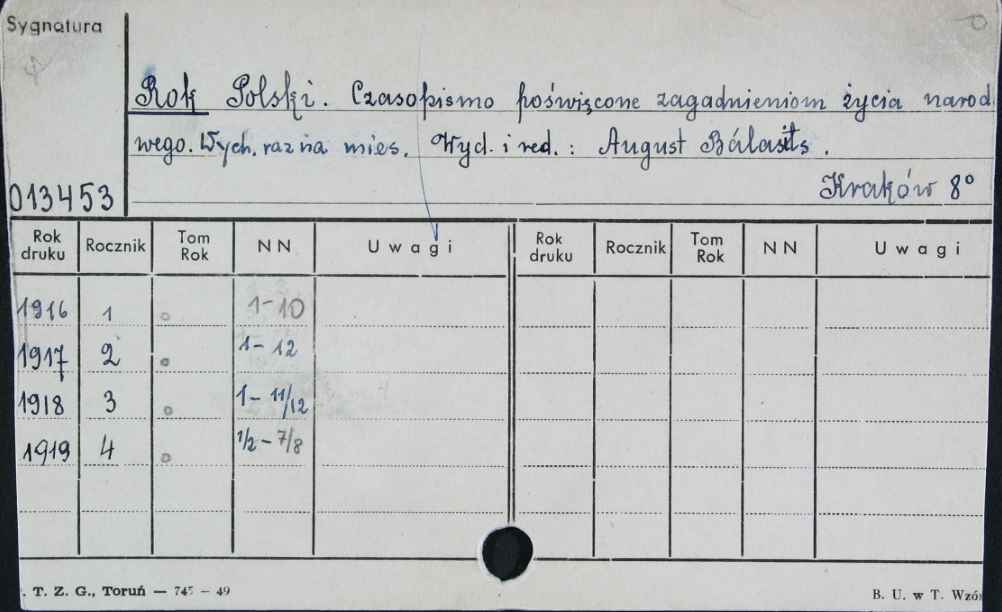 Sygnatura
Rok Polski. Czasopismo poświęcone zagadnieniom życia narod
wego. Wych. raz na mies. Wyd. i red.: August Bálasits.
013453
Kraków 8°
Rok druku Rocznik Tom Rok NN Uwagi Rok druku Rocznik Tom Rok NN Uwagi
1916 1 ° 1-10
1917 2 ° 1-12
1918 3 ° 1-11/12
1919 4 ° 1/2-7/8
. T. Z. G., Toruń — 745 — 49
B. U. w T. Wzór